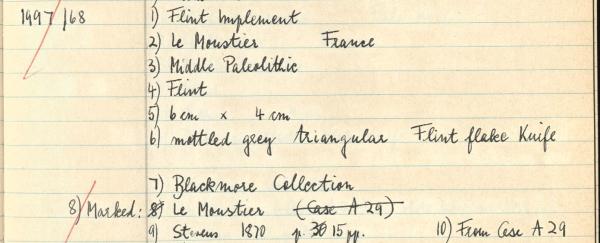 1997/68 1) Flint Implement
2) Le Moustier France
3) Middle Paleolithic
4) Flint
5) 6 cm x 4 cm
6) mottled grey triangular Flint flake Knife
7) Blackmore Collection
8) Marked: 8) Le Moustier (Case A 29)
9) Stevens 1870 p. 15 pp. 10) From Case A 29